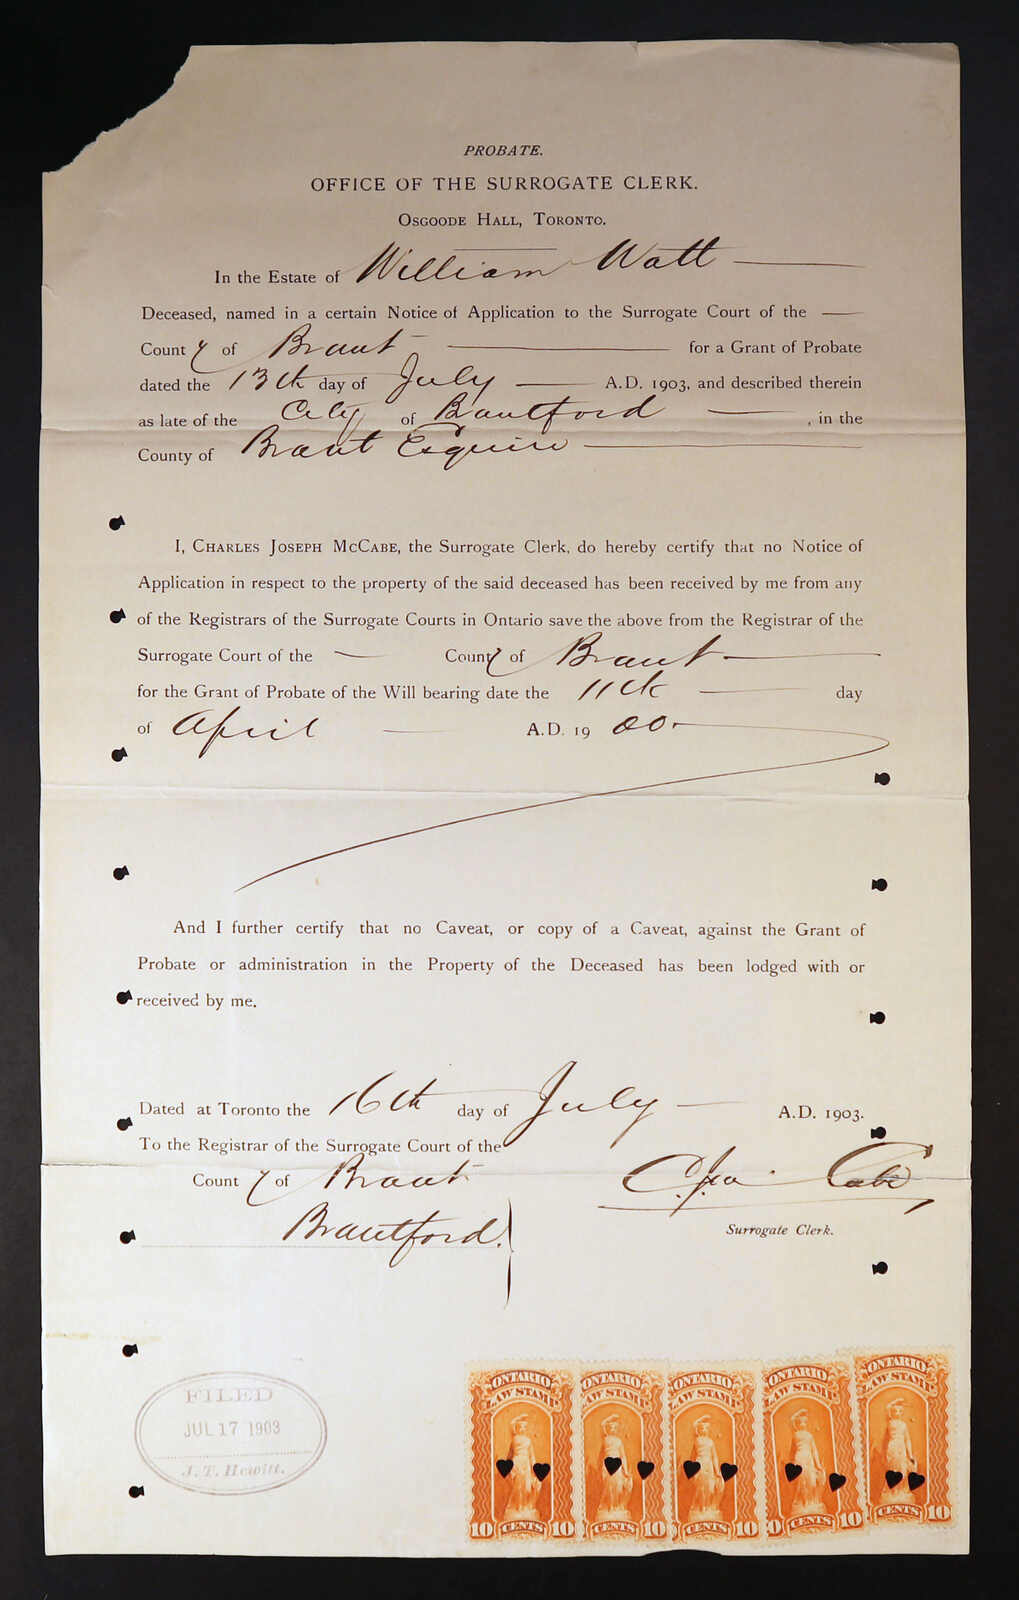 PROBATE.
OFFICE OF THE SURROGATE CLERK.
OSGOODE HALL, TORONTO.
In the Estate of William Watt
Deceased, named in a certain Notice of Application to the Surrogate Court of the
County of Brant for a Grant of Probate
dated the 13th day of July A.D. 1903, and described therein
as late of the City of Brantford, in the
County of Brant Esquire
I, CHARLES JOSEPH MCCABE, the Surrogate Clerk, do hereby certify that no Notice of
Application in respect to the property of the said deceased has been received by me from any
of the Registrars of the Surrogate Courts in Ontario save the above from the Registrar of the
Surrogate Court of the County of Brant
for the Grant of Probate of the Will bearing date the 11th day
of April A.D. 1900.
And I further certify that no Caveat, or copy of a Caveat, against the Grant of
Probate or administration in the Property of the Deceased has been lodged with or
received by me.
Dated at Toronto the 16th day of July A.D. 1903.
To the Registrar of the Surrogate Court of the
County of Brant
Brantford.
Surrogate Clerk.
FILED
JUL 17 1903
J. T. Hewitt.
ONTARIO LAW STAMP 10 CENTS 10
ONTARIO LAW STAMP 10 CENTS 10
ONTARIO LAW STAMP 10 CENTS 10
ONTARIO LAW STAMP 10 CENTS 10
ONTARIO LAW STAMP 10 CENTS 10